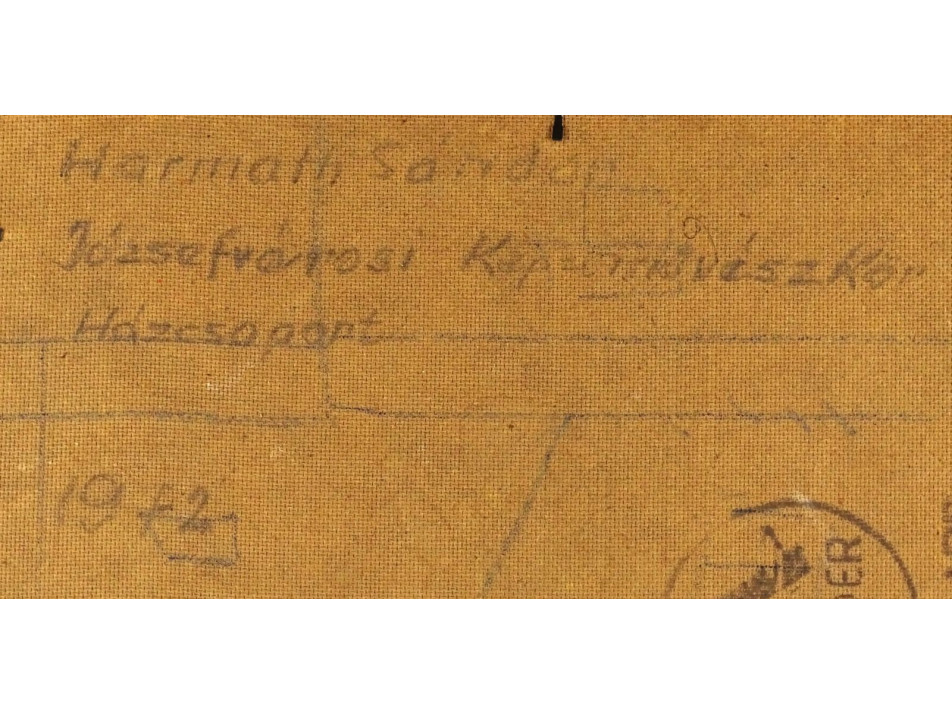 Harmath Sándor
Józsefvárosi Képzőművész Kör
Házcsoport
1972
DER